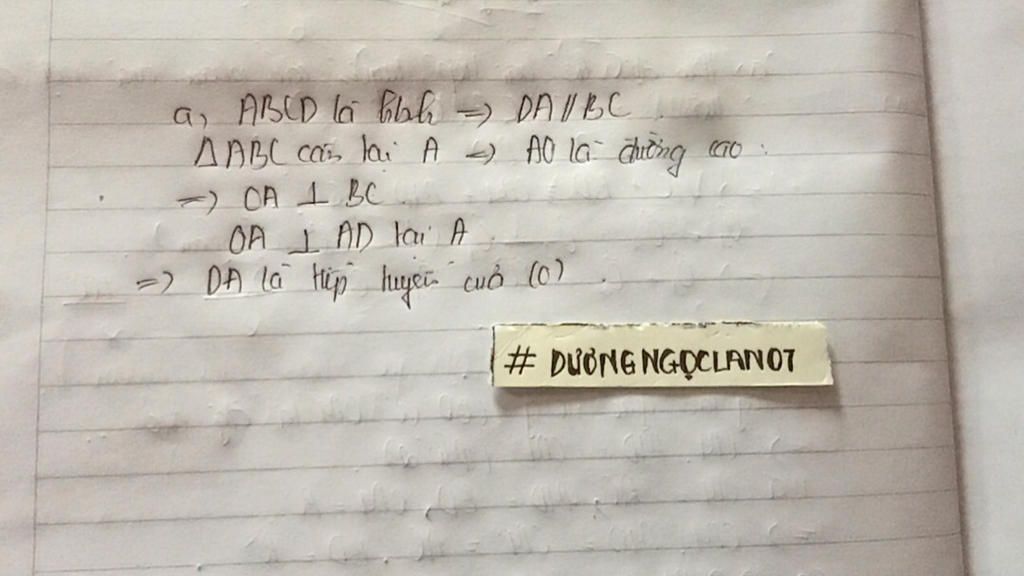 a, ABCD là hbh => DA // BC
Δ ABC cân tại A => AO là đường cao
=> OA ⊥ BC
OA ⊥ AD tại A
=> DA là tiếp tuyến của (O)
# DƯƠNGNGỌCLAN07